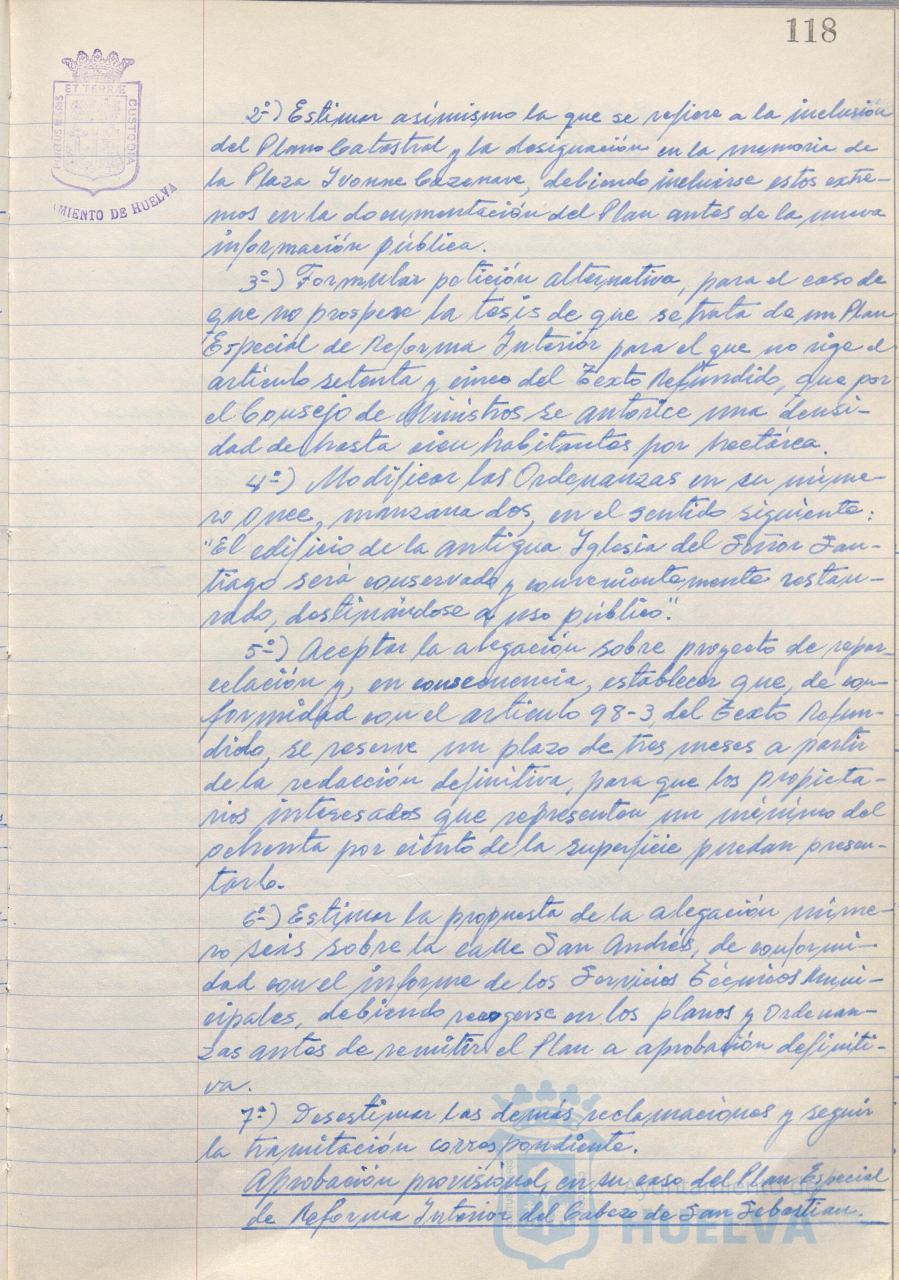 118
PORTUS MARIS
ET TERRÆ
CUSTODIA
MIENTO DE HUELVA
2º-) Estimar asímismo la que se refiere a la inclusión
del Plano Catastral y la designación en la memoria de
la Plaza Ivonne Cazenave, debiendo incluirse estos extre-
mos en la documentación del Plan antes de la nueva
información pública.
3º-) Formular petición alternativa, para el caso de
que no prospere la tesis de que se trata de un Plan
Especial de Reforma Interior para el que no rige el
artículo setenta y cinco del Texto Refundido, que por
el Consejo de Ministros se autorice una densi-
dad de hasta cien habitantes por hectárea.
4º-) Modificar las Ordenanzas en su núme-
ro once, manzana dos, en el sentido siguiente:
"El edificio de la antigua Iglesia del Señor San-
tiago será conservado y convenientemente restau-
rado, destinándose a uso público".
5º-) Aceptar la alegación sobre proyecto de repar-
celación y, en consecuencia, establecer que, de con-
formidad con el artículo 98-3, del Texto Refun-
dido, se reserve un plazo de tres meses a partir
de la redacción definitiva, para que los propieta-
rios interesados que representen un mínimo del
ochenta por ciento de la superficie puedan presen-
tarlo.
6º-) Estimar la propuesta de la alegación núme-
ro seis sobre la calle San Andrés, de conformi-
dad con el informe de los Servicios Técnicos Muni-
cipales, debiendo recogerse en los planos y Ordenan-
zas antes de remitir el Plan a aprobación definiti-
va.
7º-) Desestimar las demás reclamaciones y seguir
la tramitación correspondiente.
Aprobación provisional, en su caso del Plan Especial
de Reforma Interior del Cabezo de San Sebastian.
HUELVA